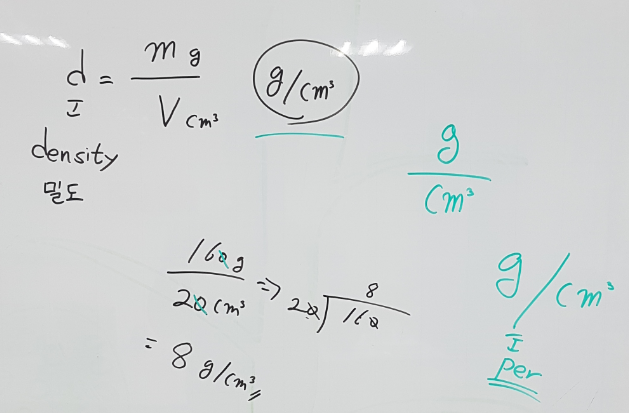 d = m g / V cm³
g/cm³
density
밀도
g / cm³
160g / 20cm³ => 20)160 8
= 8 g/cm³
g/cm³
per